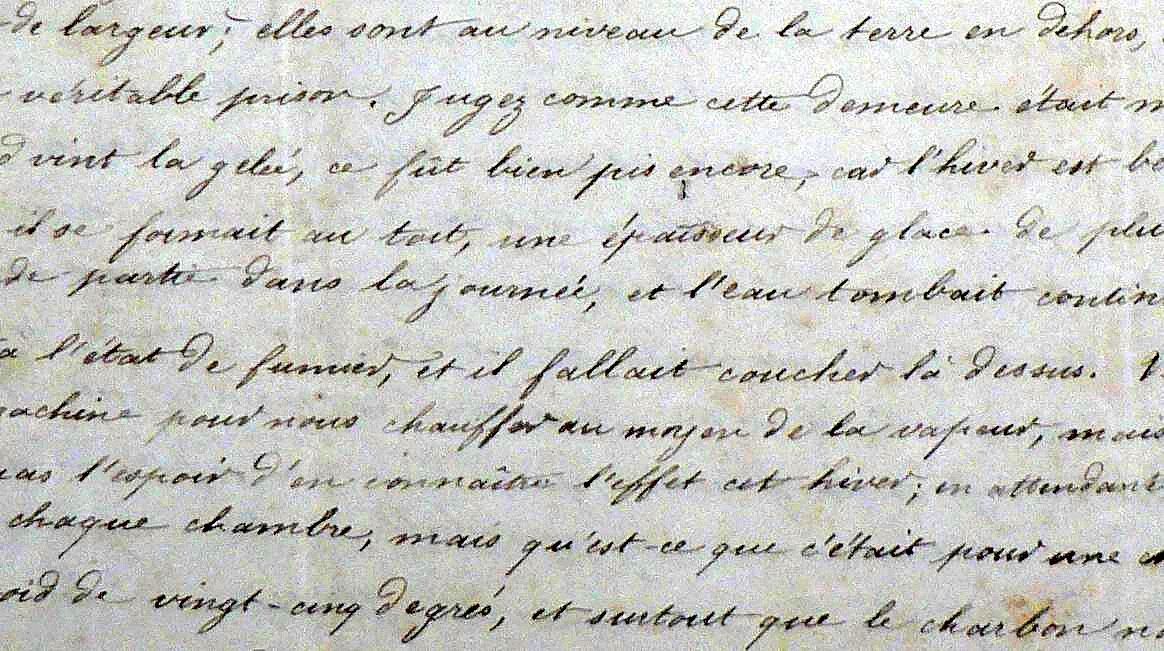 de largeur; elles sont au niveau de la terre en dehors,
véritable prison. Jugez comme cette demeure était
vint la gelée, ce fût bien pis encore, car l'hiver est
il se formait au toit, une épaisseur de glace de
de partie dans la journée, et l'eau tombait
à l'état de fumier, et il fallait coucher là dessus.
machine pour nous chauffer au moyen de la vapeur, mais
pas l'espoir d'en connaître l'effet cet hiver; en attendant
chaque chambre, mais qu'est-ce que c'était pour une
de vingt-cinq degrés, et surtout que le charbon